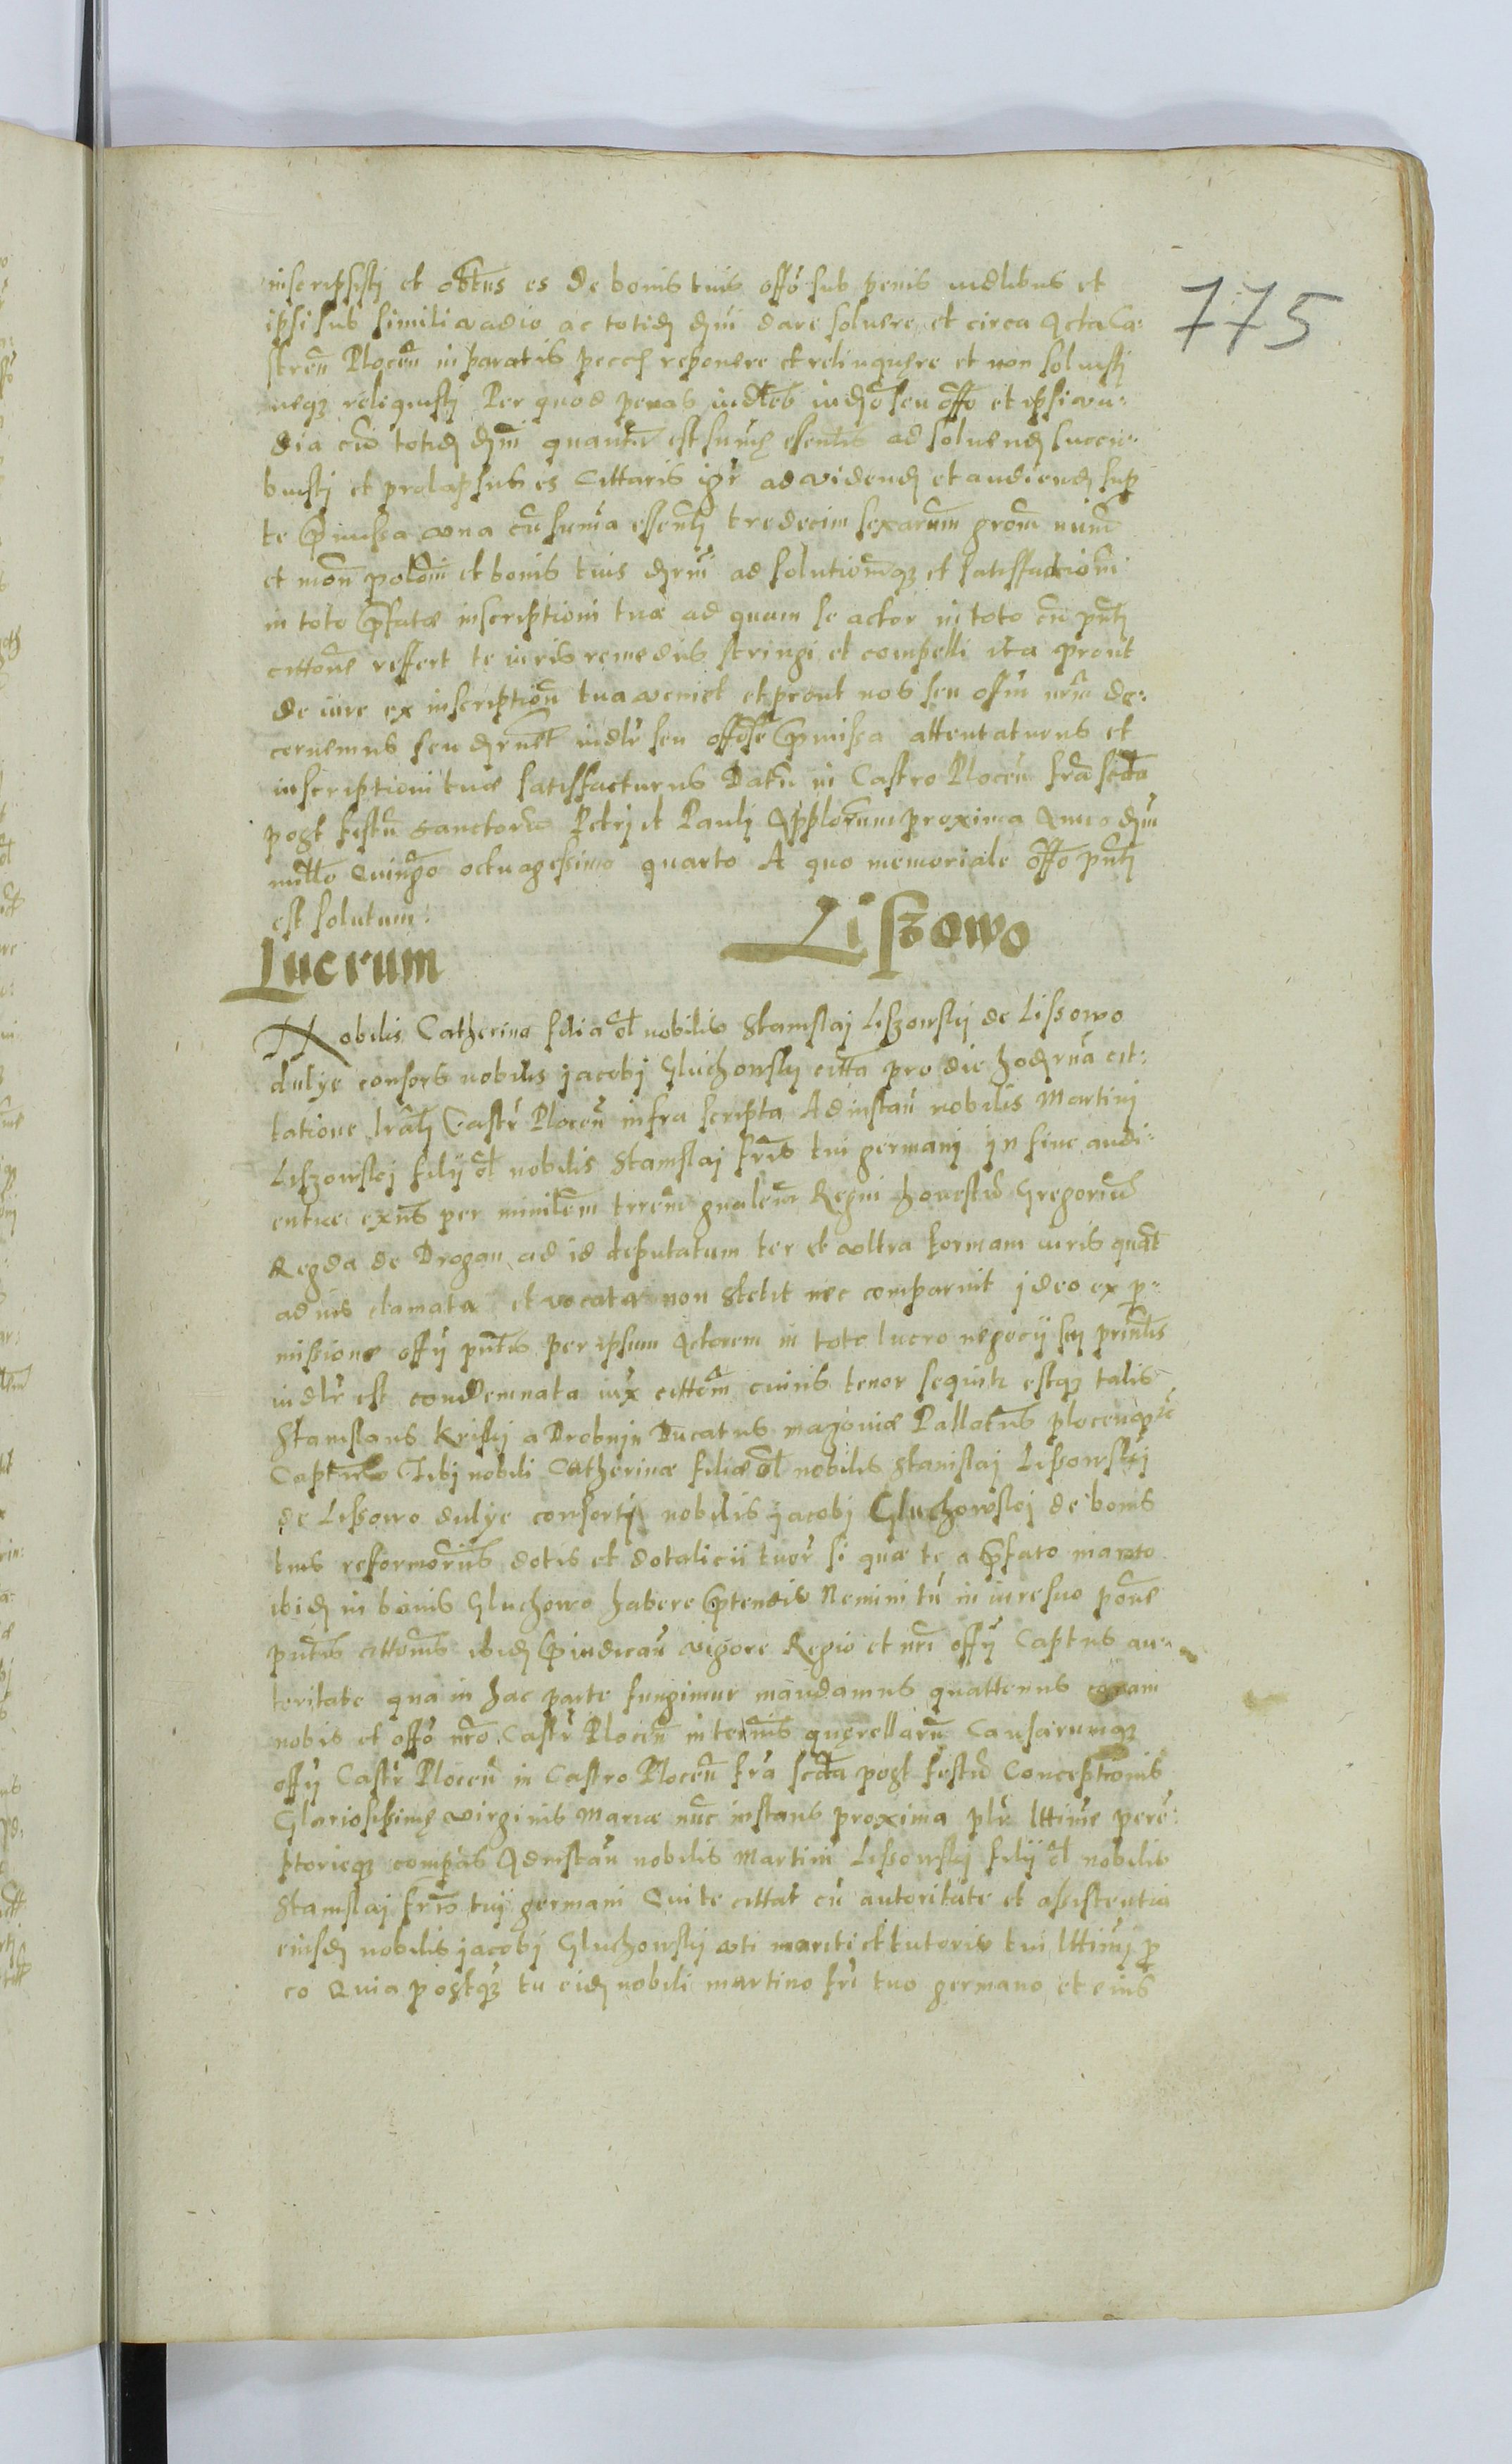 775
inscripsisti et obtus es de bonis tuis offo sub penis iudlibus et
ipsi sub simili vadio ac totid dni dare soluere et circa Acta Ca:
stren Plocen in paratis pecc reponere et relinquere et non soluisti
neqz reliquisti Per quod penas iudles iudo seu offo et ipsi va:
dia cu totid dni quantu est sume essentis ad soluend succu:
buisti et prolapsus es Cittaris igr ad vidend et audiend sup
te pmissa vna cu suma essenti tredecim sexarum grom num
et mon polom et bonis tuis derni ad solutiomqz et satisfactiom
in toto pfatae inscriptioni tuae ad quam se actor in toto cu pnti
cittone reffert te iuris remediis stringi et compelli ita prout
de iure ex inscription tua veniet et prout nos seu offm nrm de:
cernemus seu dernet iudlr seu offose pmissa attentaturus et
inscriptioni tuae satisfacturus Datu in Castro Plocen fra scda
post festu sanctoru Petri et Pauli Applorum proxima Anno dni
millo Quingo octuagessimo quarto A quo memoriale offo pnti
est solutum:
Liszowo
Lucrum
Nobilis Catherina filia ol nobilis Stanislaj Liszowskij de Lissowo
dulye consors nobilis jacobj Gluchowskij citta pro die hoderna cit:
tatione lrali Castr Plocen infra scripta Ad instan nobilis Martini
Liszowskj filij ol nobilis Stanislaj fris tui germanj in fine audi:
entiae exns per ministem trrem gnalem Regni honestu Gregoriu
Regda de Drogan ad id deputatum ter et vltra formam iuris quat
ad ius clamata et vocata non stetit nec comparuit ideo ex p:
missione offy pntis per ipsum Actorem in toto lucro negocij sui prinlis
iudlr est condemnata iux cittom cuius tenor sequitr estqz talis
Stanislaus Kriskj a Drobnjn Ducatus mazoviae Pallatns plocenqz
Captus Tibj nobili Catherinae filiae ol nobilis Stanislaj Lissowskij
de Lissowo dulye consortj nobilis jacobj Gluchowskj de bonis
tuis reformoriis dotis et dotalicii tuor si quae te a pfato marito
ibid in bonis Gluchowo habere ptendis Nemini tn in iure suo pone
pntis cittonis ibid piudican vigore Regio et nri offy Captus au:
toritate qua in hac parte fungimur mandamus quattenus coram
nobis et offo nro Castr Plocen in termis querellaru Causarumqz
offy Castr Plocen in Castro Plocen fra scda post festu Conceptionis
Gloriosissime virginis Mariae nuc instans proxima plr lttime peru:
ptorieqz compas Ad instan nobilis Martini Lissowskj filij ol nobilis
Stanislaj fris tuj germani Qui te cittat cu autoritate et assistentia
eiusd nobilis jacobj Gluchowskj vti mariti et tutoris tui lttimj p
eo Quia postqz tu eid nobili martino fri tuo germano et eius